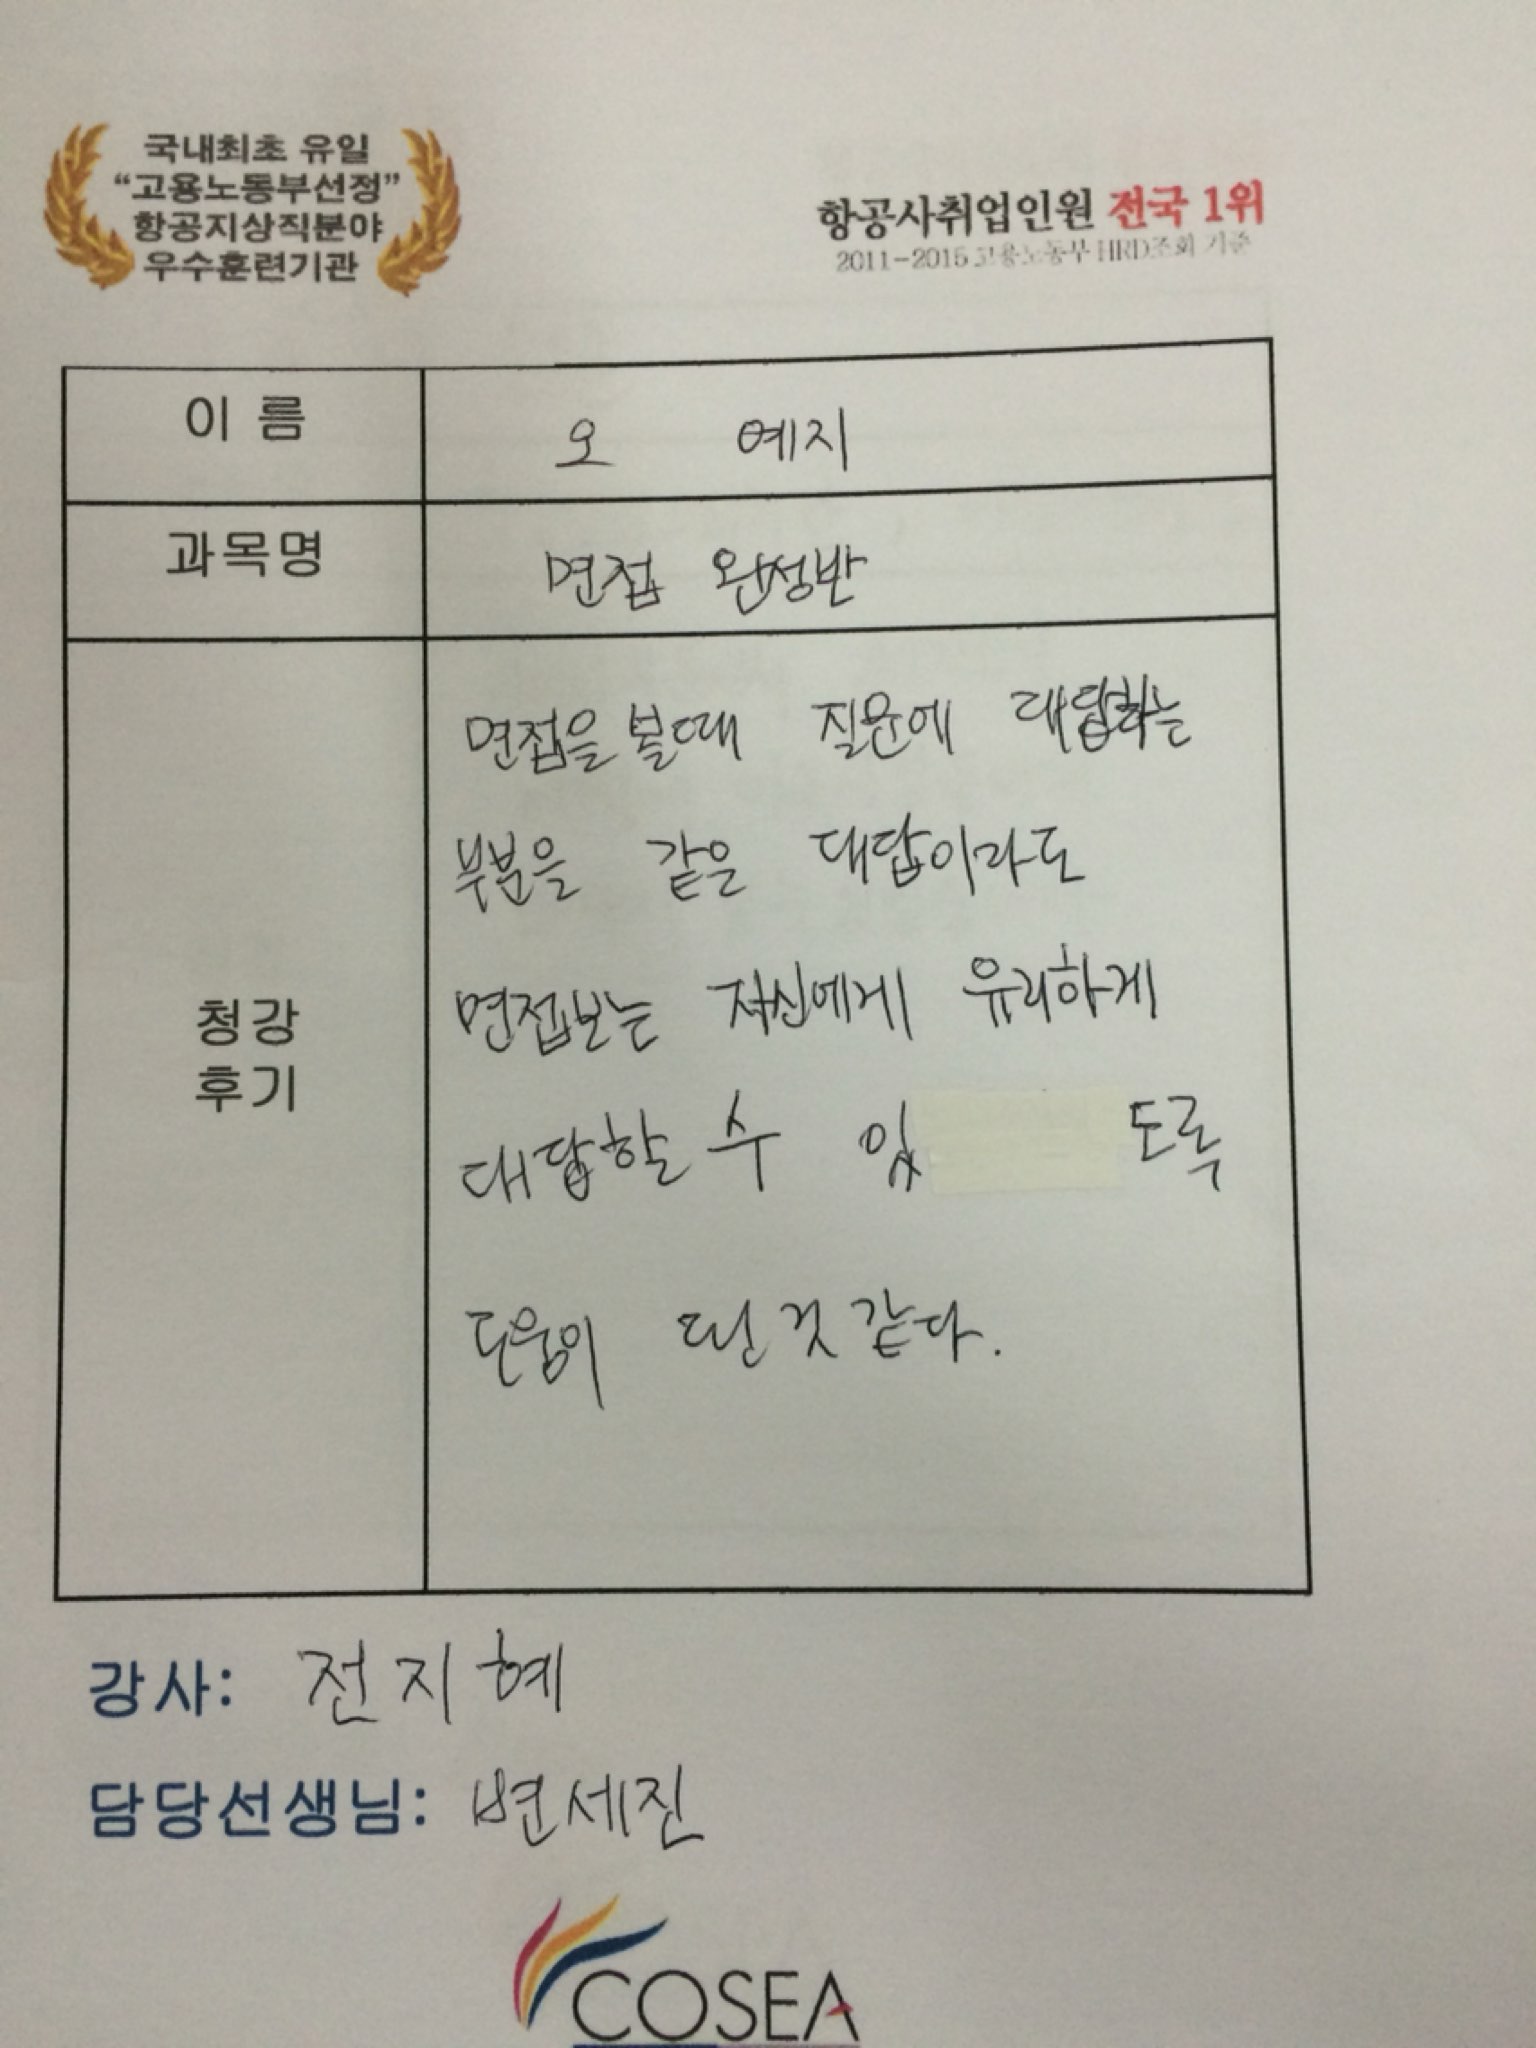 국내최초 유일
“고용노동부선정”
항공지상직분야
우수훈련기관
항공사취업인원 전국 1위
2011-2015 고용노동부 HRD조회 기준
이 름
오 예지
과목명
면접 완성반
청강
후기
면접을 볼때 질문에 대답하는
부분을 같은 대답이라도
면접보는 자신에게 유리하게
대답할 수 있 도록
도움이 된 것 같다.
강사: 전지혜
담당선생님: 변세진
COSEA